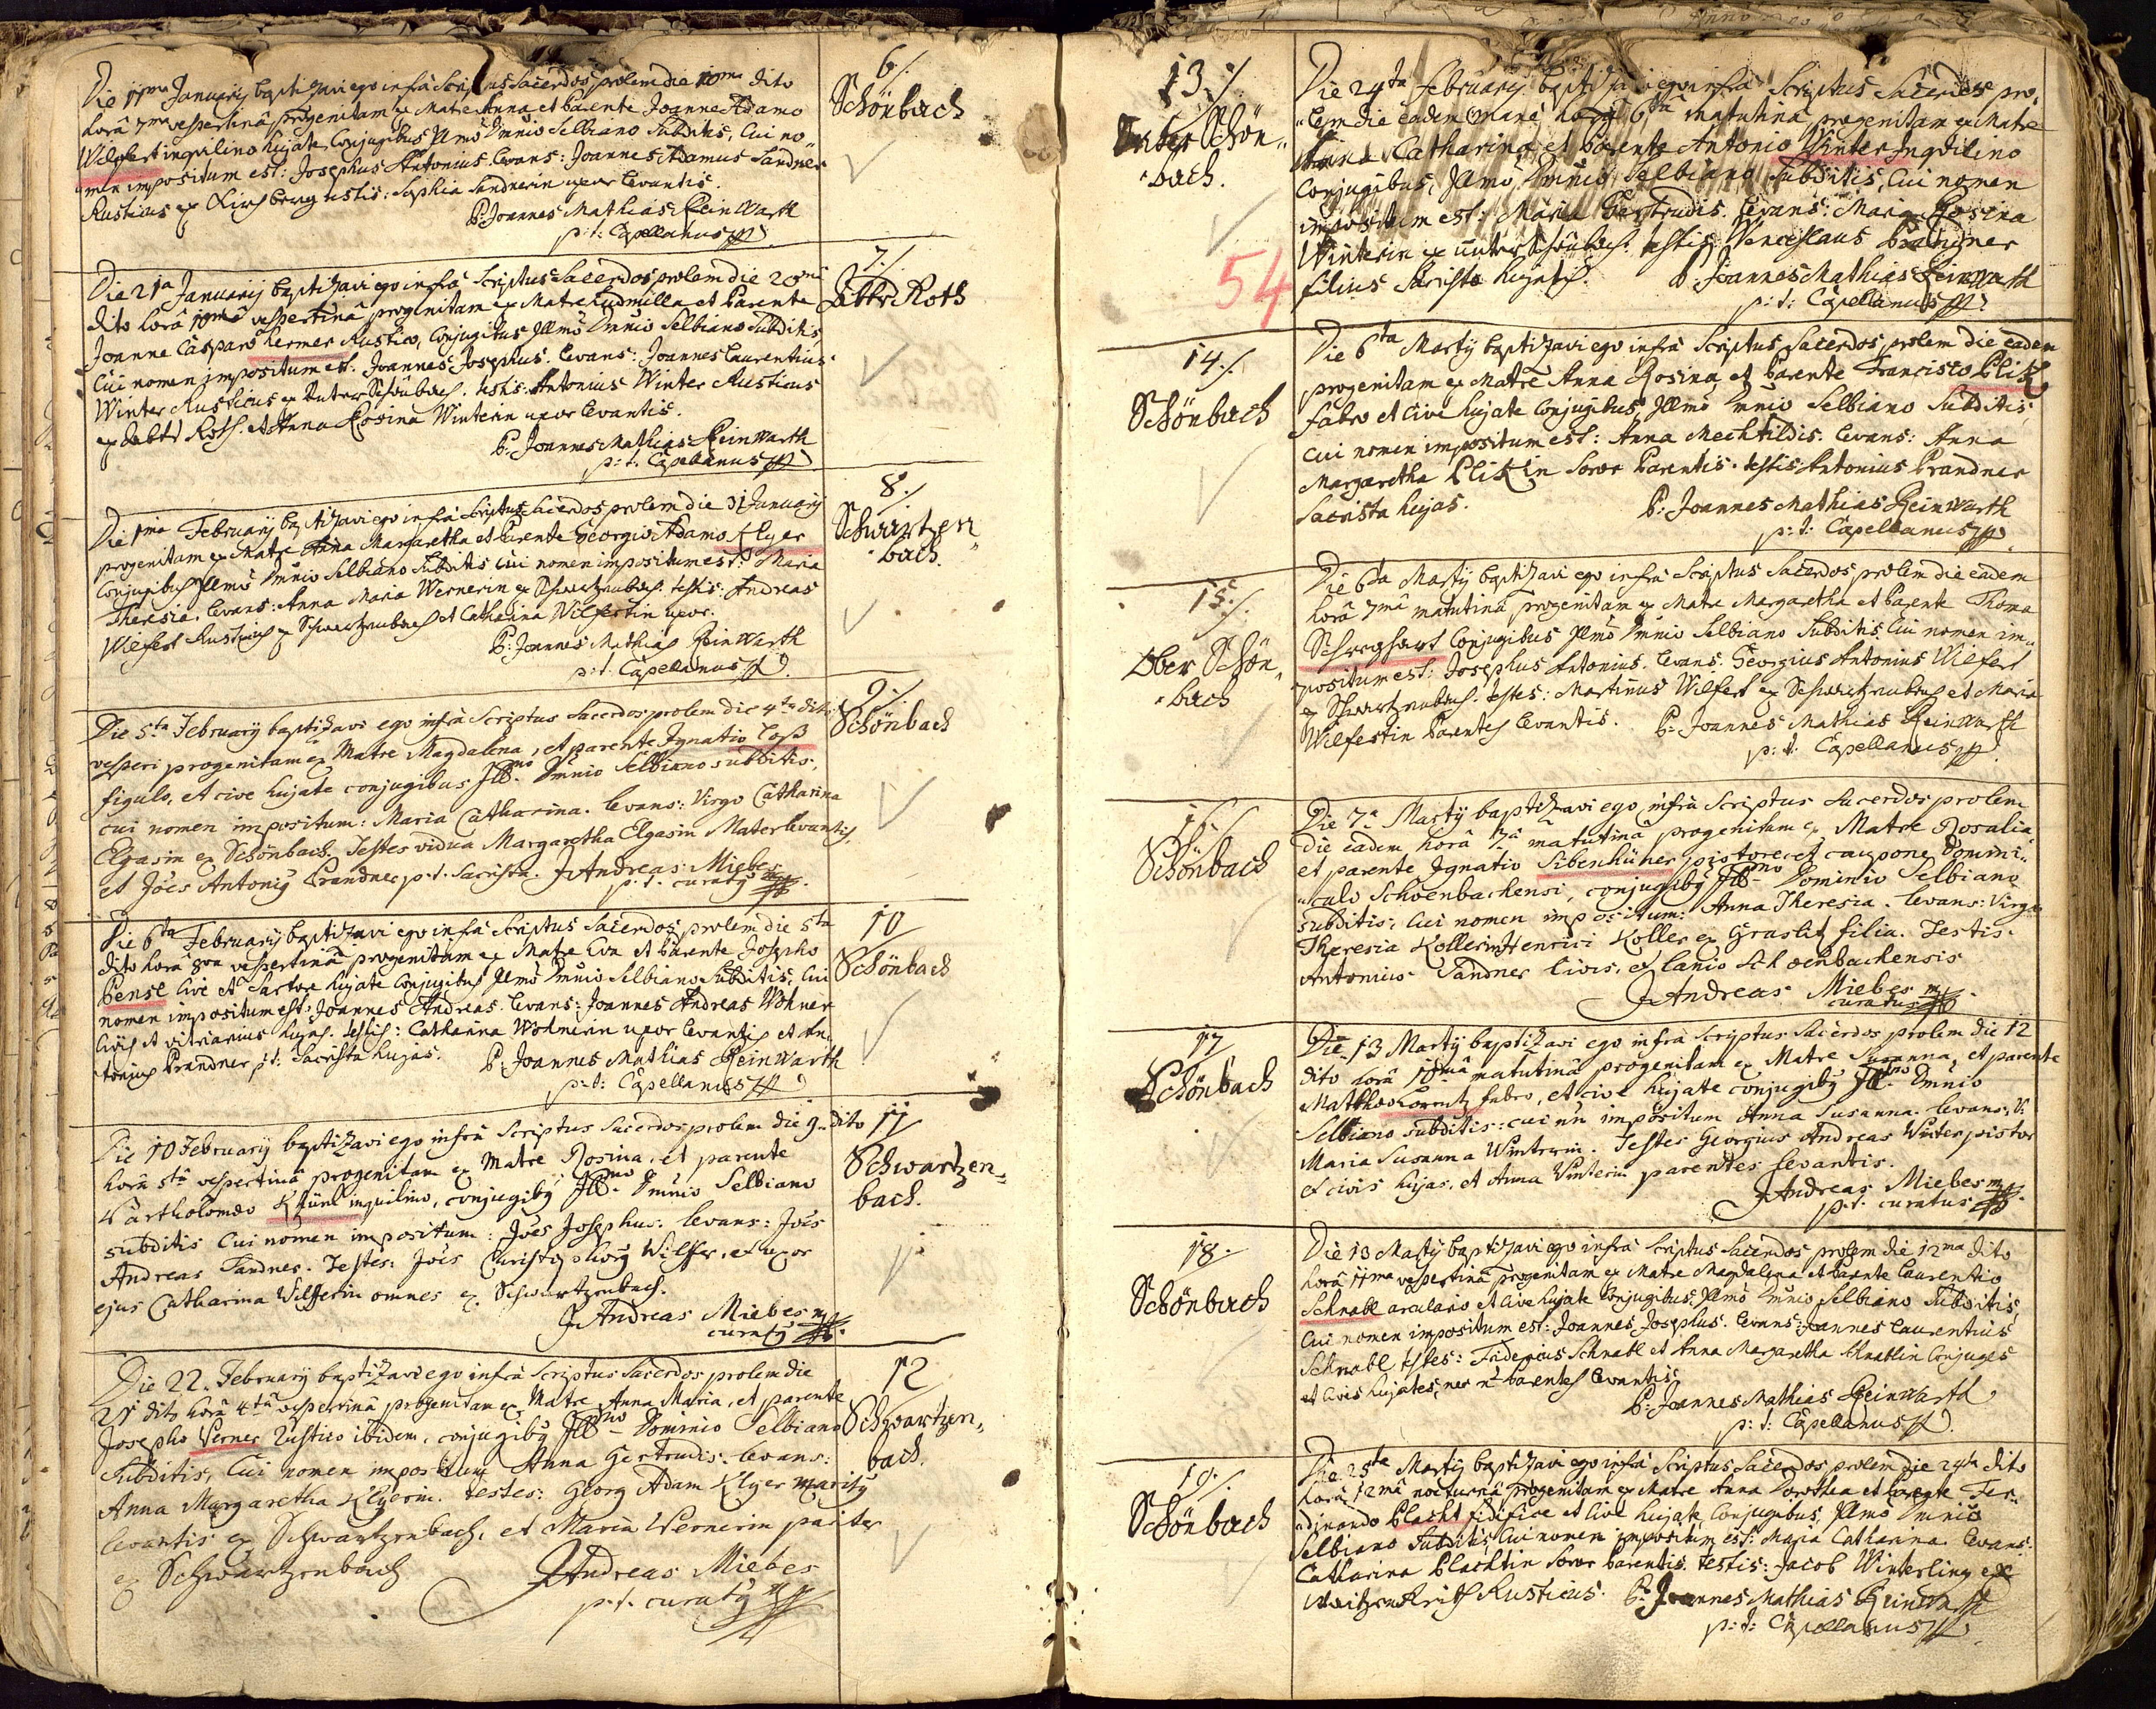 6 ./.
Schönbach
Die 11ma Januarij baptizavi ego infra Scriptus Sacerdos prolem die 10ma dito
horâ 7ma vespertinâ progenitam ex Matre Anna et Parente Joanne Adamo
Wilfert inquilino hujate, Conjugibus Illmo Dmnio Selbiano Subditis, Cui no„
„men impositum est: Josephus Antonius. Levans: Joannes Adamus Sandner
Rusticus ex Kirchberg testis: Sophia Sandnerin uxor levantis.
P: Joannes Mathias Reinwarth
p: t: Capellanus
7 ./.
Die 21a Januarij baptizavi ego infrà Scriptus Sacerdos prolem die 20ma
dito horâ 10mâ vespertinâ progenitam ex Matre Ludmilla et Parente
Joanne Casparo Hermer Rustico, Conjugibus Illmo Dmnio Selbiano Subditis,
Cui nomen impositum est: Joannes Josephus. Levans: Joannes Laurentius
Winter Rusticus ex Unter Schönbach. testis: Antonius Winter Rusticus
et Anna Rosina Winterin uxor levantis.
P: Joannes Mathias Reinwarth
p: t: Capellanus
8 ./.
Schwartzen„
„bach.
Die 1ma Februarij baptizavi ego infrà Scriptus Sacerdos prolem die 31 Januarij
progenitam ex Matre Anna Margaretha et Parente Georgio Adamo Klyer
Conjugibus Illmo Dmnio Selbiano Subditis Cui nomen impositum est: Maria
Theresia. Levans: Anna Maria Wernerin ex Schwartzenbach. testis: Andreas
Wilfert Rusticus ex Schwartzenbach et Catharina Wilfertin uxor.
P: Joannes Mathias Reinwarth
p: t: Capellanus
9 ./.
Schönbach
Die 5ta Februarij baptizavi ego infrà Scriptus Sacerdos prolem die 4ta dito
vesperi progenitam ex Matre Magdalena, et parente Ignatio Loß
figulo, et cive hujate conjugibus Illmo Dmnio Selbiano subditis,
cui nomen impositum: Maria Catharina. Levans: Virgo Catharina
Elgasin ex Schönbach. Testes vidua Margaretha Elgasin Mater levantis,
et Joes Antonij Prandner p. t. Sacrista. Andreas Miebes
p. t. curatij
10
Schönbach
Die 6ta Februarij baptizavi ego infrà Scriptus Sacerdos prolem die 5ta
dito horâ 8va vespertinâ progenitam ex Matre Eva et Parente Josepho
Pensl Cive et Sartore hujate Conjugibus Illmo Dmnio Selbiano Subditis, Cui
nomen impositum est: Joannes Andreas. Levans: Joannes Andreas Wohner
Civis et vitriarius hujas. testis: Catharina Wohnerin uxor levantis et An„
„tonius Prandner p: t: Sacrista hujas. P: Joannes Mathias Reinwarth
p: t: Capellanus
11
Schwartzen„
bach.
Die 10 Februarij baptizavi ego infrà Scriptus Sacerdos prolem die 9 dito
horâ 5tâ vespertinâ progenitam ex Matre Rosina, et parente
Bartholomæo Khünl inquilino, conjugibij Illmo Dmnio Selbiano
subditis Cui nomen impositum: Joës Josephus. Levans: Joës
Andreas Sandner. Testes: Joës Christophorij Wilffer, et uxor
ejus Catharina Wilfferin omnes ex Schwartzenbach.
Andreas Miebes mp
curatij
12
Schwartzen„
bach.
Die 22. Februarij baptizavi ego infrà Scriptus Sacerdos prolem die
21 dito horâ 4tâ vespertinâ progenitam ex Matre Anna Maria, et parente
Josepho Verner Rustico ibidem, conjugibij Illmo Dominio Selbiano
Subditis, Cui nomen impositum Anna Gertrudis. Levans:
Anna Margaretha Klyerin. testes: Georg Adam Klyer maritij
levantis ex Schwartzenbach, et Maria Wernerin pariter
ex Schwartzenbach
Andreas Miebes
p. t. curatij mp
13 ./.
Unter Schön„
„bach.
54
Die 24ta Februarij baptizavi ego infrà Scriptus Sacerdos pro„
„lem die eadem mane horâ 6tâ matutinâ progenitam ex Matre
Anna Catharina et Parente Antonio Winter Inquilino
Conjugibus, Illmo Dmnio Selbiano Subditis, Cui nomen
impositum est: Maria Gertrudis. Levans: Maria Rosina
Winterin ex Unter Schönbach. testis: Wenceslaus Prandner
filius Sacristæ hujatis. P: Joannes Mathias Reinwarth
p: t: Capellanus
14 ./.
Schönbach
Die 6ta Martij baptizavi ego infrà Scriptus Sacerdos prolem die eadem
progenitam ex Matre Anna Rosina et Parente Francisco Plitz
fabro et Cive hujate Conjugibus, Illmo Dmnio Selbiano Subditis,
cui nomen impositum est: Anna Mechtildis. Levans: Anna
Margaretha Plitzin Soror Parentis. testis Antonius Prandner
Sacrista hujas. P: Joannes Mathias Reinwarth
p: t: Capellanus
15 ./.
Ober Schön„
„bach
Die 6ta Martij baptizavi ego infrà Scriptus Sacerdos prolem die eadem
horâ 7mâ matutinâ progenitam ex Matre Margaretha et Parente Thoma
Conjugibus Illmo Dmnio Selbiano Subditis, Cui nomen im„
„positum est: Josephus Antonius. Levans: Georgius Antonius Wilfert
ex Schwartzenbach. testes: Martinus Wilfert ex Schwartzenbach et Maria
Wilfertin Parentes levantis. P: Joannes Mathias Reinwarth
p: t: Capellanus
16
Schönbach
Die 7a Martij baptizavi ego infrà Scriptus Sacerdos prolem
die eadem horâ matutinâ progenitam ex Matre Rosalia
et parente Ignatio Sibenhüner pistore et caupone Domini„
„calo Schoenbachensi, conjugibij Illmo Dominio Selbiano
subditis, Cui nomen impositum: Anna Theresia. Levans: Virgo
Theresia Kollerin Henrici Koller ex Graslitz filia. Testis
Antonius Sandner Civis, et lanio Schoenbachensis
Andreas Miebes mp
curatus
17
Schönbach
Die 13 Martij baptizavi ego infrà Scriptus Sacerdos prolem die 12
dito horâ matutinâ progenitam ex Matre Susanna, et parente
Matthæo Lorentz fabro, et cive hujate conjugibij Illmo Dmnio
Selbiano subditis: cui nn impositum Anna Susanna. Levans: V:
Maria Susanna Winterin. Testes Georgius Andreas Winter pistor
et civis hujas, et Anna Winterin parentes levantis.
Andreas Miebes mp
p. t. curatus
18.
Schönbach
Die 13 Martij baptizavi ego infrà Scriptus Sacerdos prolem die 12ma dito
horâ 11ma vespertinâ progenitam ex Matre Magdalena et Parente Laurentio
Schnabl arculario et Cive hujate Conjugibus, Illmo Dmnio Selbiano Subditis,
Cui nomen impositum est: Joannes Josephus. Levans: Joannes Laurentius
Schnabl testes: Fridericus Schnabl et Anna Margaretha Schnablin Conjuges
et Cives hujates, nec n: Parentes levantis.
P: Joannes Mathias Reinwarth
p: t: Capellanus
19 ./.
Schönbach
Die 25ta Martij baptizavi ego infrà Scriptus Sacerdos prolem die 24ta dito
horâ 12mâ nocturnâ progenitam ex Matre Anna Dorothea et Parente Fer„
„dinando Placht fidifice et Cive hujate Conjugibus, Illmo Dmnio
Selbiano Subditis, Cui nomen impositum est: Maria Catharina. Levans:
Catharina Plachtin Soror Parentis. testis: Jacob Winterling ex
Rusticus. P: Joannes Mathias Reinwarth
p: t: Capellanus